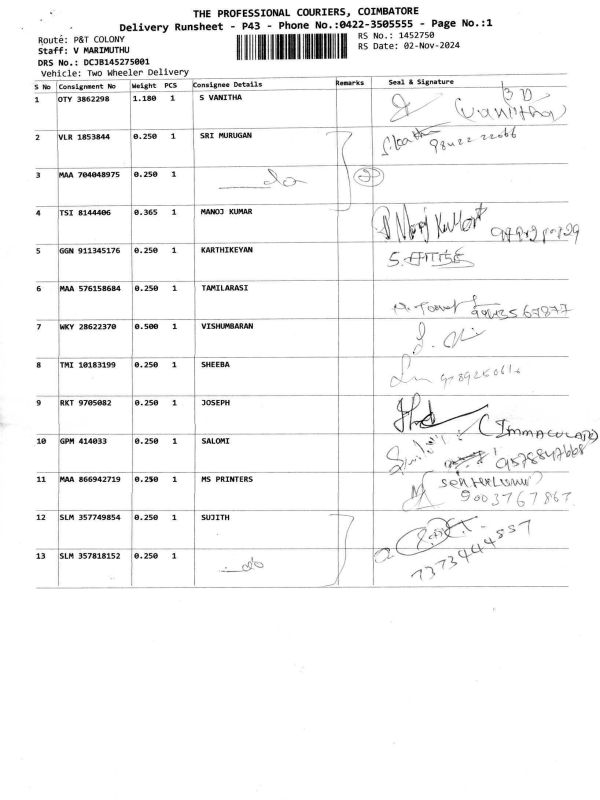 THE PROFESSIONAL COURIERS, COIMBATORE
Delivery Runsheet - P43 - Phone No.:0422-3505555 - Page No.:1
Route: P&T COLONY
RS No.: 1452750
Staff: V MARIMUTHU
RS Date: 02-Nov-2024
DRS No.: DCJB145275001
Vehicle: Two Wheeler Delivery
S No Consignment No Weight PCS Consignee Details Remarks Seal & Signature
1 OTY 3862298 1.180 1 S VANITHA (Vanitha)
2 VLR 1853844 0.250 1 SRI MURUGAN
3 MAA 704048975 0.250 1 do 2
4 TSI 8144406 0.365 1 MANOJ KUMAR Manoj Kumar
5 GGN 911345176 0.250 1 KARTHIKEYAN
6 MAA 576158684 0.250 1 TAMILARASI
7 WKY 28622370 0.500 1 VISHUMBARAN
8 TMI 10183199 0.250 1 SHEEBA
9 RKT 9705082 0.250 1 JOSEPH
10 GPM 414033 0.250 1 SALOMI (IMMACULATE)
9578847668
11 MAA 866942719 0.250 1 MS PRINTERS
9003767867
12 SLM 357749854 0.250 1 SUJITH
13 SLM 357818152 0.250 1 do 7373444557